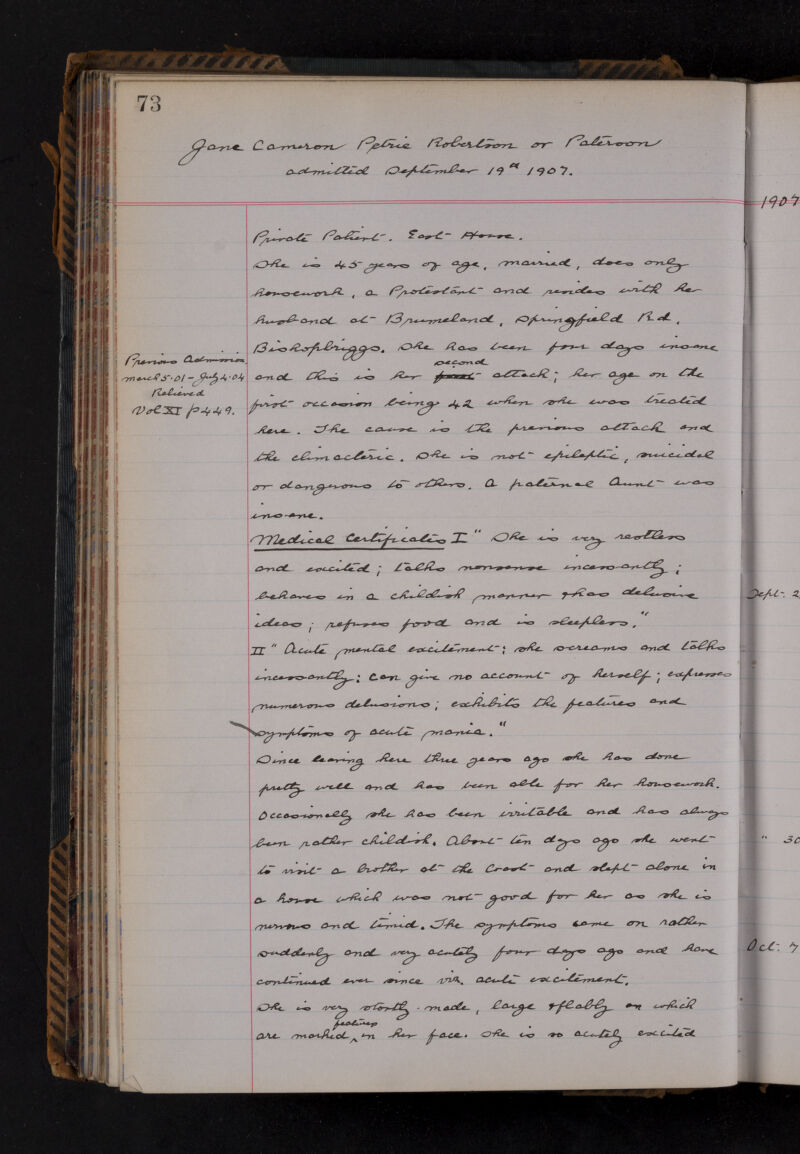 73
Jane Cameron Petrie Robertson or Paterson
admitted September 19th 1907.
1907
Private Patient. East House.
She is 45 years of age, married, does only
housework, a Protestant and resides with her
husband at Brumeland, Springfield Rd.
Bishopbriggs. She has been four days insane
Previous Admission
March 5·01 - July 4·04
Relieved
Vol XI p 449.
and this is her first second attack; her age on the
first occasion being 42 when she was treated
here. The cause is the previous attack and
the climacteric. She is not epileptic, suicidal
or dangerous to others. A paternal Aunt was
insane.
Medical Certificates I " She is very restless
and excited; talks nonsense incessantly;
behaves in a childish manner & has delusive
ideas; refuses food and is sleepless."
II " Acute mental excitement; she screams and talks
incessantly; can give no account of herself; expresses
numerous delusions; exhibits the features and
symptoms of acute mania."
Since leaving here three years ago she has done
pretty well and has been able for her housework.
Occasionally she has been irritable and has always
been rather childish. About ten days ago she went
to visit a brother at the Coast and slept alone in
a house which was not good for her as she is
nervous and timid. The symptoms came on rather
suddenly and very acutely four days ago and have
continued ever since viz. acute excitement.
She is very stoutly made, large & flabby on which
are marked features in her face. She is so acutely excited
Sept. 2
" 30
Oct. 7